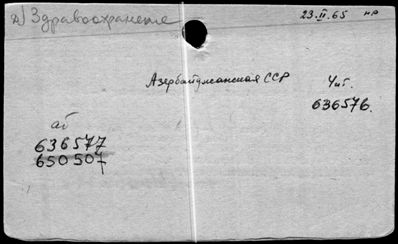 а) Здравоохранение
23.II.65 нр
Азербайджанская ССР
Чит.
636576.
аб
636577
650507